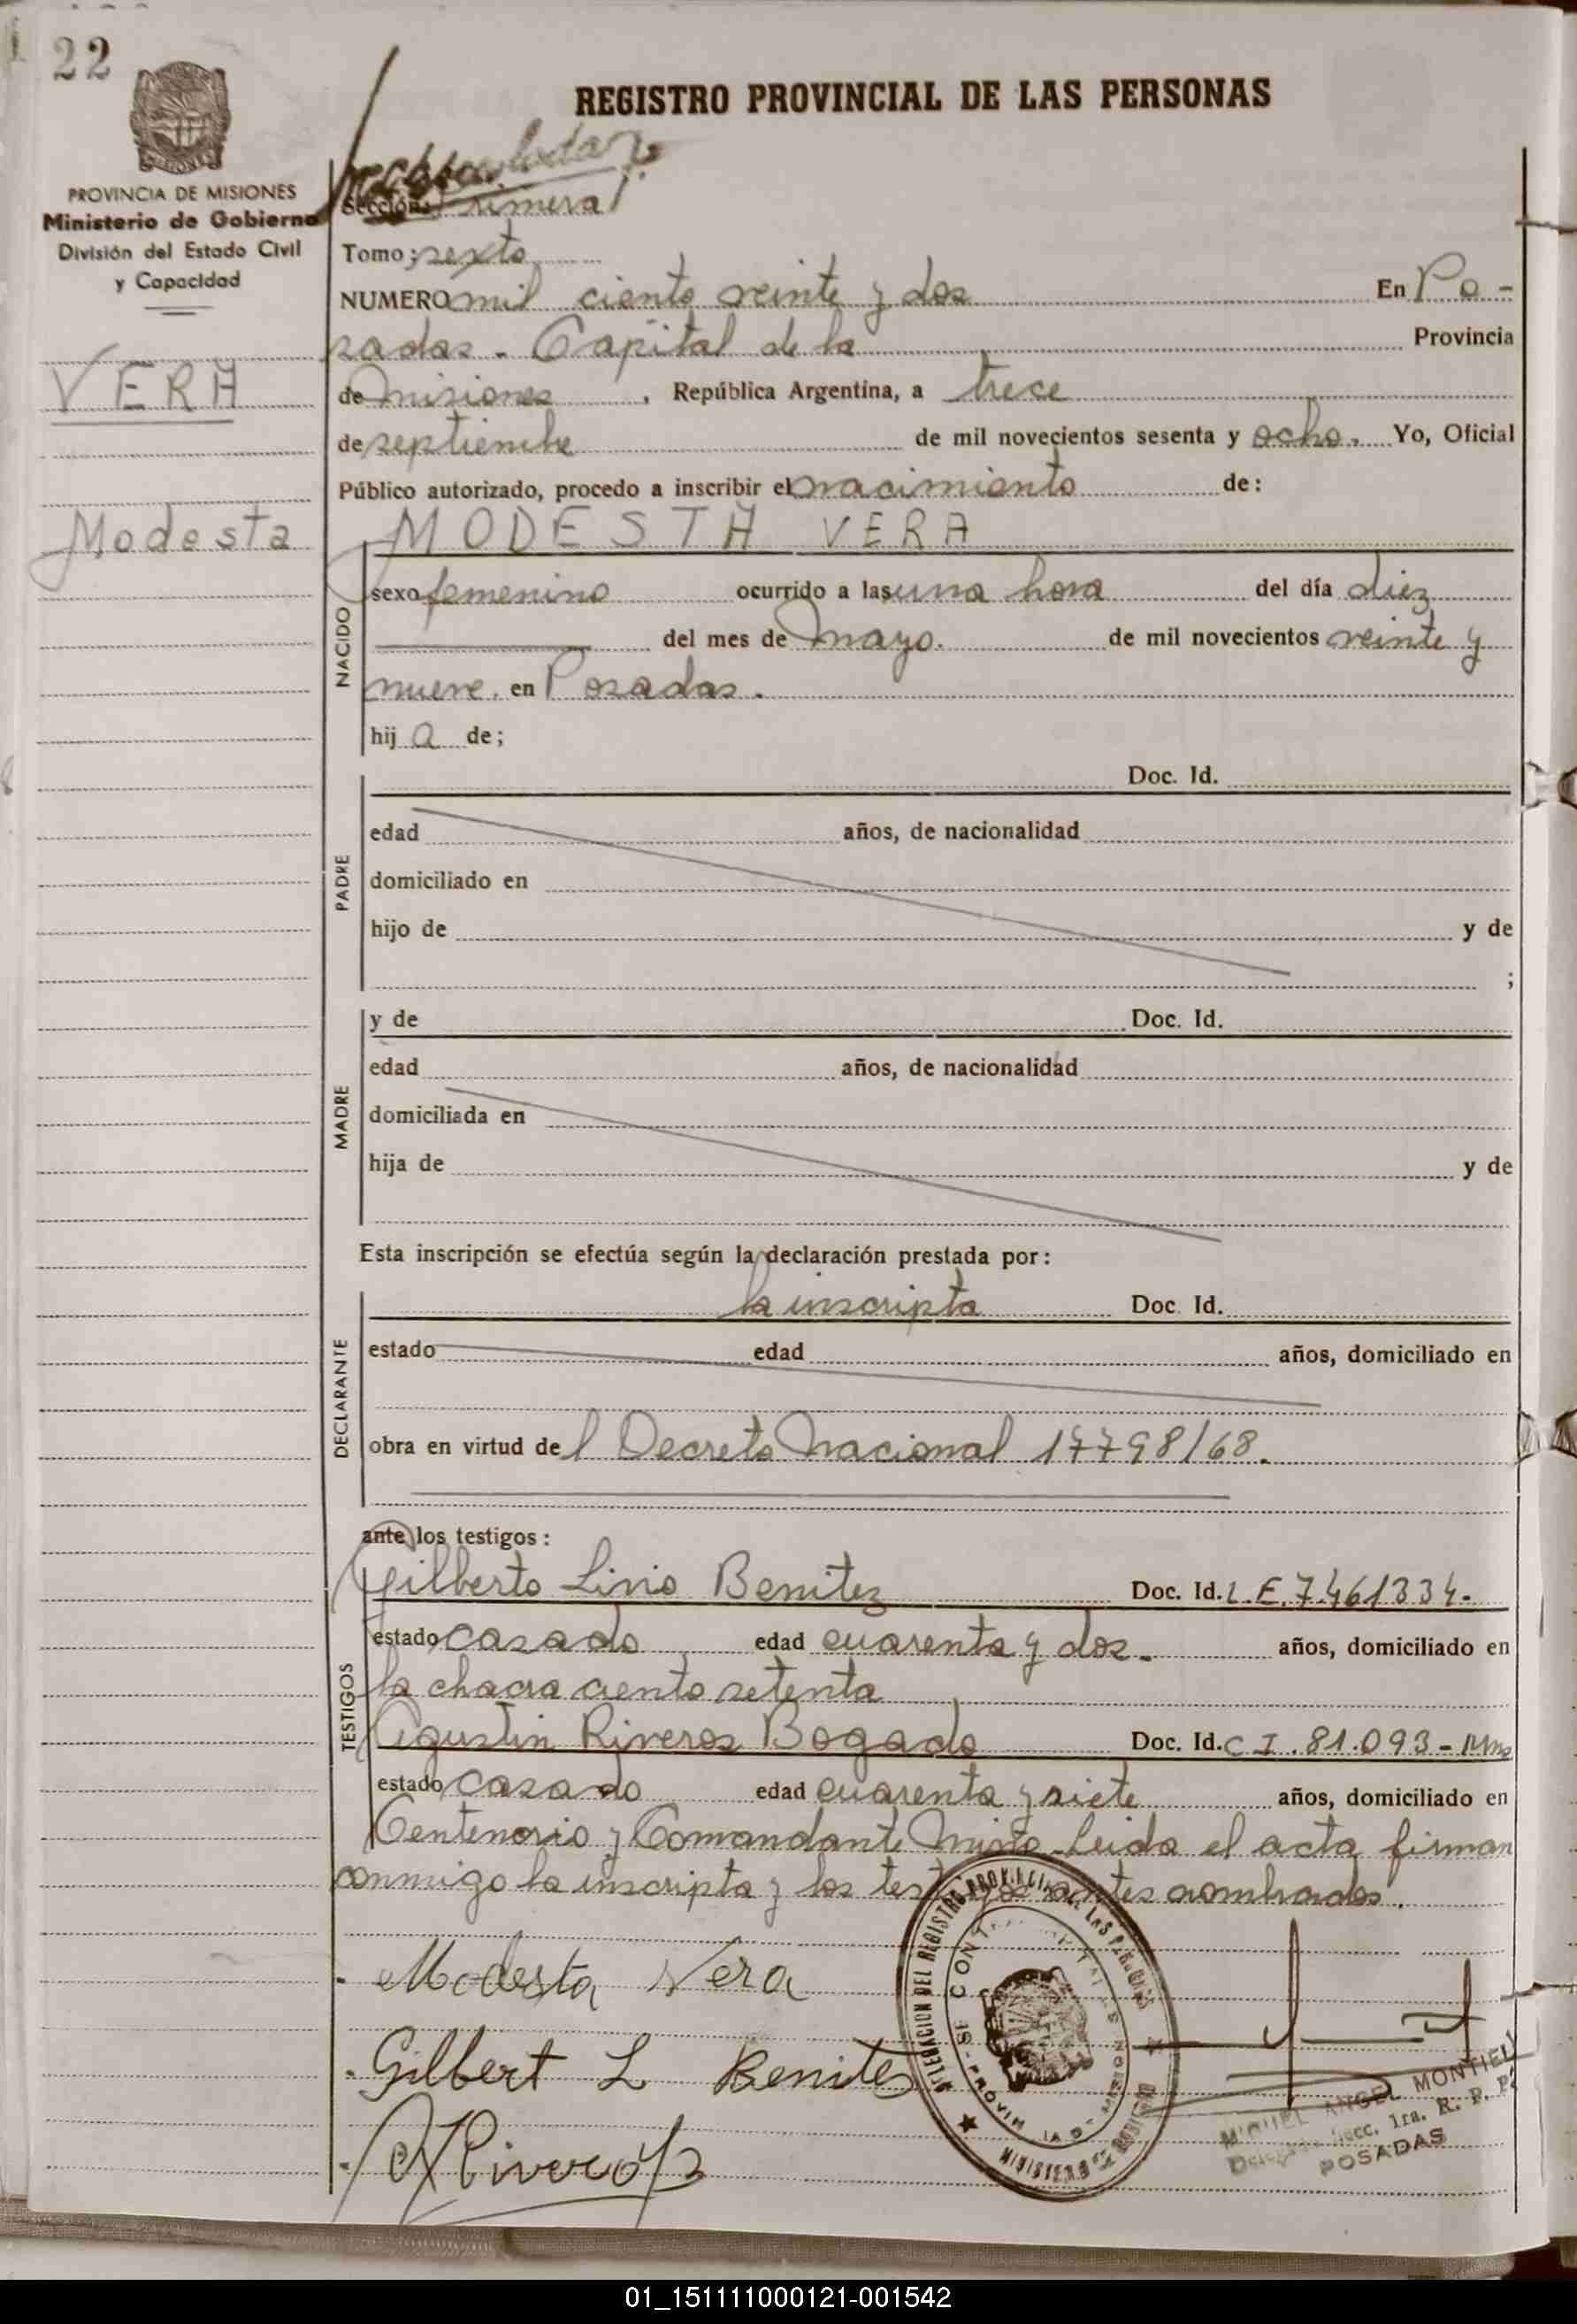 22
REGISTRO PROVINCIAL DE LAS PERSONAS
PROVINCIA DE MISIONES
Ministerio de Gobierno
División del Estado Civil
y Capacidad
VERA
Modesta
Sección: Primera
Tomo; sexto
NUMERO mil ciento veinte y dos En Po-
sadas. Capital de la Provincia
de Misiones, República Argentina, a trece
de septiembre de mil novecientos sesenta y ocho. Yo, Oficial
Público autorizado, procedo a inscribir el nacimiento de:
MODESTA VERA
NACIDO
sexo femenino ocurrido a las una hora del día diez
del mes de Mayo. de mil novecientos veinte y
nueve. en Posadas.
hij a de;
PADRE
Doc. Id.
edad años, de nacionalidad
domiciliado en
hijo de y de
;
MADRE
y de Doc. Id.
edad años, de nacionalidad
domiciliada en
hija de y de
Esta inscripción se efectúa según la declaración prestada por:
DECLARANTE
la inscripta Doc. Id.
estado edad años, domiciliado en
obra en virtud del Decreto Nacional 17798/68.
ante los testigos:
TESTIGOS
Gilberto Livio Benitez Doc. Id. L.E. 7.461334-
estado casado edad cuarenta y dos. años, domiciliado en
la chacra ciento setenta
Agustin Riveros Bogado Doc. Id. C I. 81.093-
estado casado edad cuarenta y siete años, domiciliado en
Centenario y Comandante Leida el acta firman
conmigo la inscripta y los testigos antes nombrados.
Modesta Vera
Gilbert L Benites
DELEGACION DEL REGISTRO PROVINCIAL DE LAS PERSONAS
MINISTERIO DE GOBIERNO
MIGUEL ANGEL MONTIEL
Secc. 1ra. R. P. P.
POSADAS
01_151111000121-001542